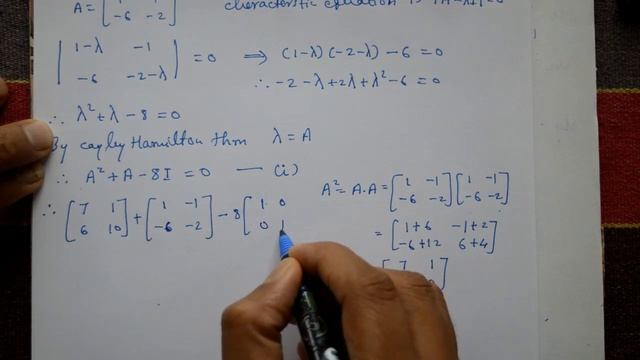 A = [1 -1; -6 -2] characteristic equation is |A-λI|=0
|1-λ -1; -6 -2-λ| = 0 ⟹ (1-λ)(-2-λ) - 6 = 0
∴ -2 - λ + 2λ + λ² - 6 = 0
∴ λ² + λ - 8 = 0
By cayley Hamilton thm λ = A
∴ A² + A - 8I = 0 — (i)
A² = A·A = [1 -1; -6 -2] [1 -1; -6 -2]
∴ [7 1; 6 10] + [1 -1; -6 -2] - 8 [1 0; 0 1
= [1+6 -1+2; -6+12 6+4]
[7 1